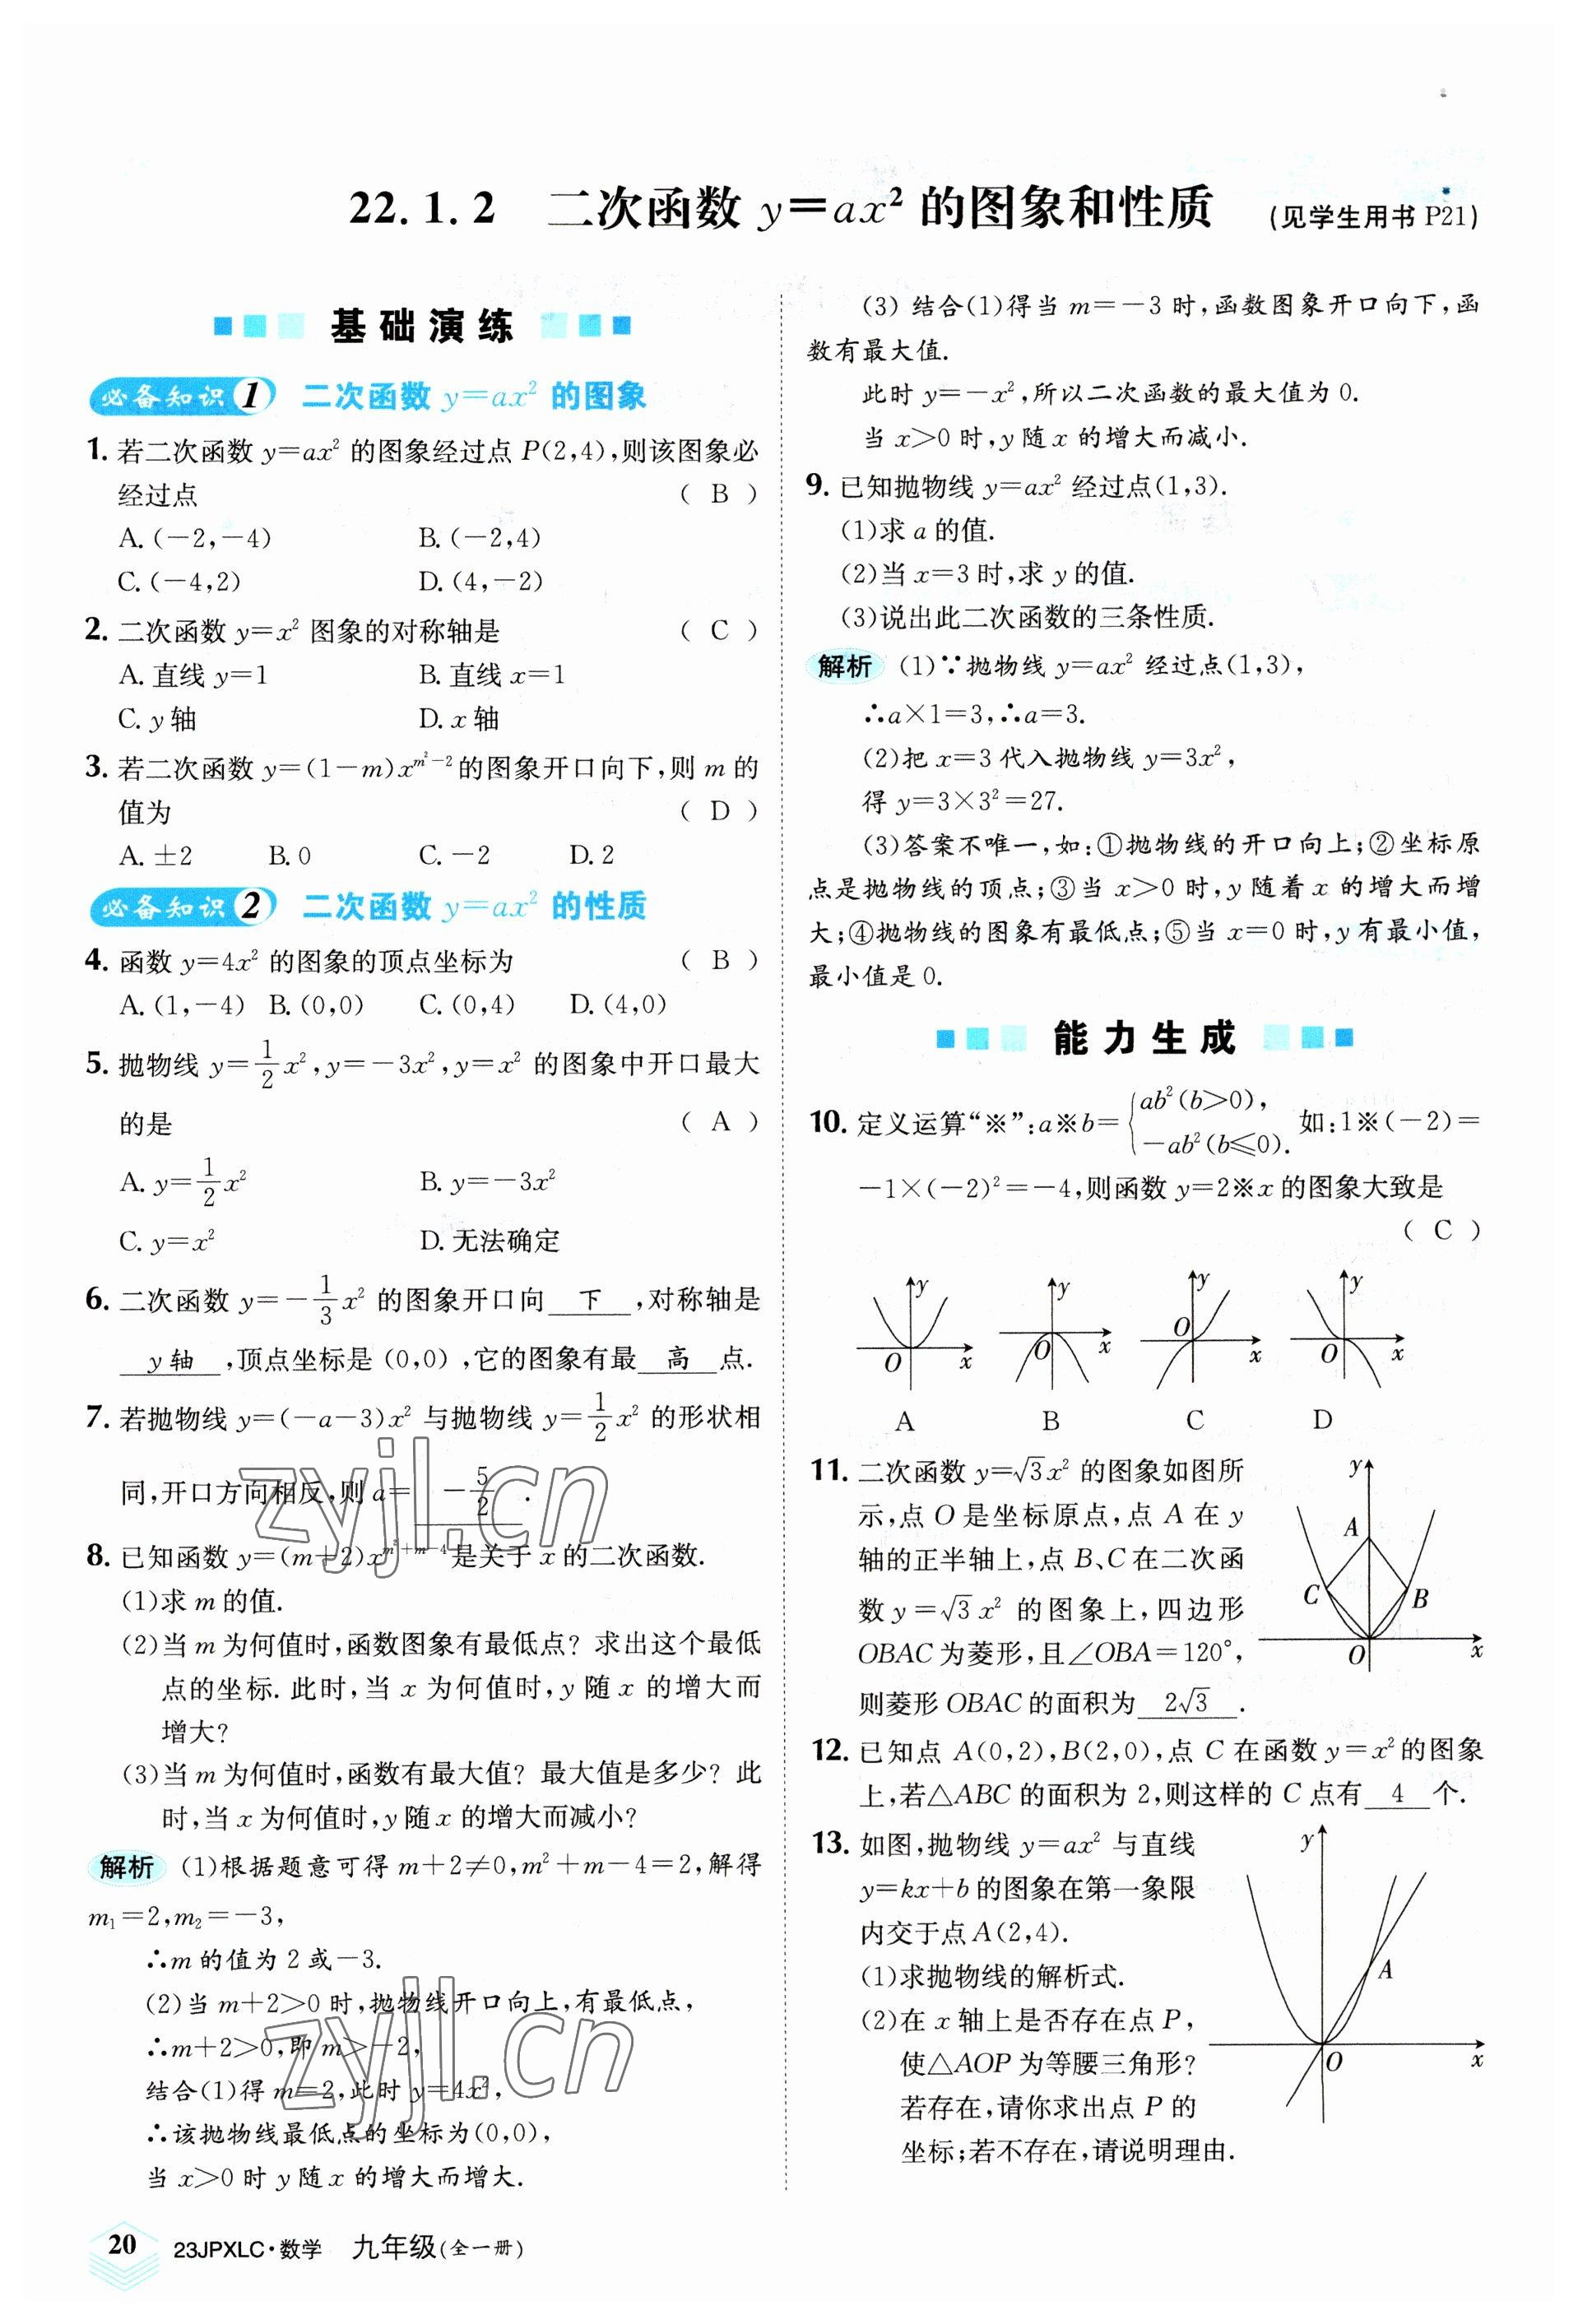 22.1.2 二次函数 y=ax² 的图象和性质 (见学生用书 P21)
基础演练
必备知识1 二次函数 y=ax² 的图象
1. 若二次函数 y=ax² 的图象经过点 P(2,4),则该图象必
经过点 ( B )
A.(-2,-4) B.(-2,4)
C.(-4,2) D.(4,-2)
2. 二次函数 y=x² 图象的对称轴是 ( C )
A.直线 y=1 B.直线 x=1
C.y 轴 D.x 轴
3. 若二次函数 y=(1-m)x^{m²-2}的图象开口向下,则 m 的
值为 ( D )
A.±2 B.0 C.-2 D.2
必备知识2 二次函数 y=ax² 的性质
4. 函数 y=4x² 的图象的顶点坐标为 ( B )
A.(1,-4) B.(0,0) C.(0,4) D.(4,0)
5. 抛物线 y=1/2 x²,y=-3x²,y=x² 的图象中开口最大
的是 ( A )
A.y=1/2 x² B.y=-3x²
C.y=x² D.无法确定
6. 二次函数 y=-1/3 x² 的图象开口向 下 ,对称轴是
y 轴 ,顶点坐标是 (0,0) ,它的图象有最 高 点.
7. 若抛物线 y=(-a-3)x² 与抛物线 y=1/2 x² 的形状相
同,开口方向相反,则 a= -5/2 .
8. 已知函数 y=(m+2)x^{m²+m-4}是关于 x 的二次函数.
(1)求 m 的值.
(2)当 m 为何值时,函数图象有最低点? 求出这个最低
点的坐标. 此时,当 x 为何值时,y 随 x 的增大而
增大?
(3)当 m 为何值时,函数有最大值? 最大值是多少? 此
时,当 x 为何值时,y 随 x 的增大而减小?
解析 (1)根据题意可得 m+2≠0,m²+m-4=2,解得
m₁=2,m₂=-3,
∴m 的值为 2 或-3.
(2)当 m+2>0 时,抛物线开口向上,有最低点,
∴m+2>0,即 m>-2,
结合(1)得 m=2,此时 y=4x²,
∴该抛物线最低点的坐标为(0,0),
当 x>0 时 y 随 x 的增大而增大.
(3) 结合(1)得当 m=-3 时,函数图象开口向下,函
数有最大值.
此时 y=-x²,所以二次函数的最大值为 0.
当 x>0 时,y 随 x 的增大而减小.
9. 已知抛物线 y=ax² 经过点(1,3).
(1)求 a 的值.
(2)当 x=3 时,求 y 的值.
(3)说出此二次函数的三条性质.
解析 (1)∵抛物线 y=ax² 经过点(1,3),
∴a×1=3,∴a=3.
(2)把 x=3 代入抛物线 y=3x²,
得 y=3×3²=27.
(3)答案不唯一,如:①抛物线的开口向上;②坐标原
点是抛物线的顶点;③当 x>0 时,y 随着 x 的增大而增
大;④抛物线的图象有最低点;⑤当 x=0 时,y 有最小值,
最小值是 0.
能力生成
10. 定义运算“※”:a※b={ab²(b>0), -ab²(b≤0). 如:1※(-2)=
-1×(-2)²=-4,则函数 y=2※x 的图象大致是
( C )
y O x y O x y O x y O x
A B C D
11. 二次函数 y=√3x² 的图象如图所
示,点 O 是坐标原点,点 A 在 y
轴的正半轴上,点 B、C 在二次函
数 y=√3x² 的图象上,四边形
OBAC 为菱形,且∠OBA=120°,
则菱形 OBAC 的面积为 2√3 .
y A C B O x
12. 已知点 A(0,2),B(2,0),点 C 在函数 y=x² 的图象
上,若△ABC 的面积为 2,则这样的 C 点有 4 个.
13. 如图,抛物线 y=ax² 与直线
y=kx+b 的图象在第一象限
内交于点 A(2,4).
(1)求抛物线的解析式.
(2)在 x 轴上是否存在点 P,
使△AOP 为等腰三角形?
若存在,请你求出点 P 的
坐标;若不存在,请说明理由.
y A O x
zyjl.cn
zyjl.cn
20 23JPXLC·数学 九年级(全一册)